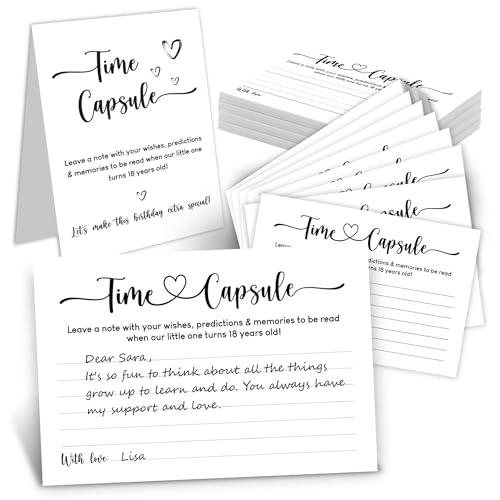 Time
Capsule
Leave a note with your wishes, predictions
& memories to be read when our little one
turns 18 years old!
Let's make this birthday extra special!
Time Capsule
Leave a note with your wishes, predictions & memories to be read
when our little one turns 18 years old!
With love:
Time Capsule
Leave
predictions & memories to be read
turns 18 years old!
Time Capsule
Leave a note with your wishes, predictions & memories to be read
when our little one turns 18 years old!
Dear Sara,
It's so fun to think about all the things
grow up to learn and do. You always have
my support and love.
With love: Lisa